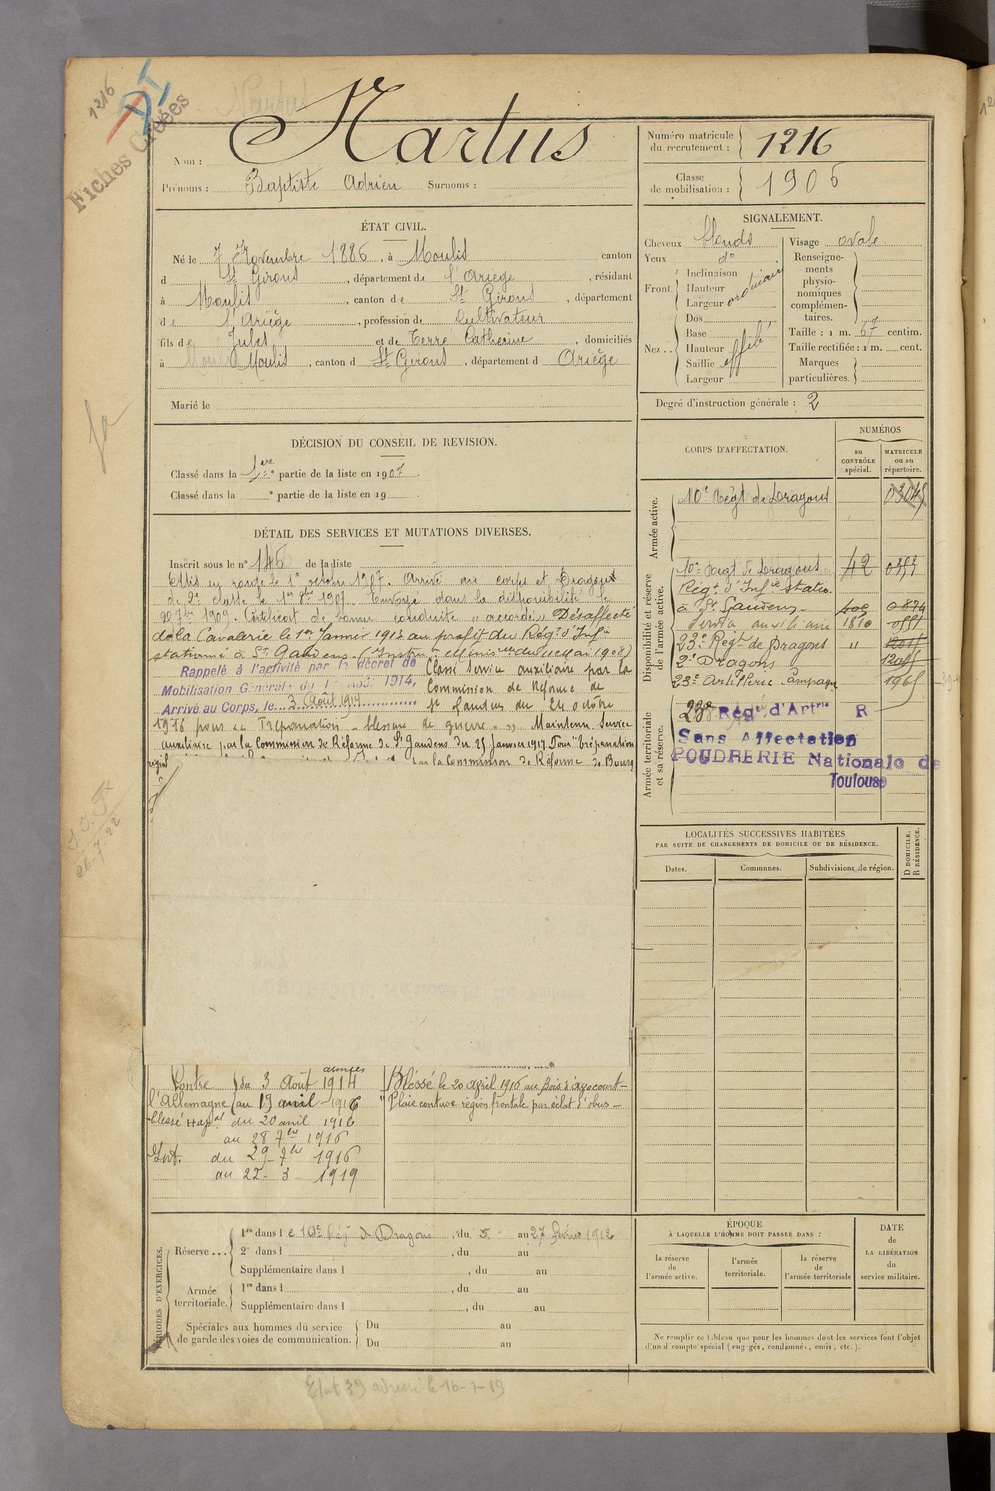 1216
Fiches Créées
Nom : Martus
Prénoms : Baptiste Adrien Surnoms :
Numéro matricule du recrutement : 1216
Classe de mobilisation : 1906
ÉTAT CIVIL.
Né le 7 Novembre 1886, à Moulis canton
d St Girons, département de l'Ariège, résidant
à Moulis, canton de St Girons, département
de l'Ariège, profession de Cultivateur
fils de Jules et de Terre Catherine, domiciliés
à Moulis, canton d St Girons, département d Ariège
Marié le
SIGNALEMENT.
Cheveux blonds
Yeux do
Front. Inclinaison
Hauteur ordinaire
Largeur
Nez.. Dos
Base
Hauteur
Saillie effilé
Largeur
Visage ovale
Renseignements physionomiques complémentaires.
Taille : 1 m. 67 centim.
Taille rectifiée : 1 m. cent.
Marques particulières.
Degré d'instruction générale : 2
DÉCISION DU CONSEIL DE REVISION.
Classé dans la 1ere partie de la liste en 1907
Classé dans la e partie de la liste en 19
DÉTAIL DES SERVICES ET MUTATIONS DIVERSES.
Inscrit sous le n° 146 de la liste
Mis en route le 1er octobre 1907. Arrivé au corps et Dragon
de 2e classe le 1er 8bre 1907. Envoyé dans la disponibilité le
1909. Certificat de bonne conduite "accordé" Désaffecté
de la Cavalerie le 1er Janvier 1912 au profit du Régt d'Infie
stationné à St Gaudens
Rappelé à l'activité par le décret de
Mobilisation Générale du 1er août 1914,
Arrivé au Corps, le 3 Août 1914
Classé Service auxiliaire par la
Commission de Réforme de
St Gaudens du 24 octobre
1916 pour "Trépanation - blessure de guerre". Maintenu Service
auxiliaire par la Commission de Réforme de St Gaudens du 25 Janvier 1917. Pour "trépanation
par la Commission de Réforme de Bourg
CORPS D'AFFECTATION.
NUMÉROS
au CONTRÔLE spécial.
MATRICULE ou au répertoire.
Armée active.
10e Régt de Dragons
Disponibilité et réserve de l'armée active.
10e Régt de Dragons 42
Régt d'Infie statio.
à St Gaudens
Service auxiliaire 1810
23e Régt de Dragons "
2e Dragons
23e Artillerie Campagne
Armée territoriale et sa réserve.
23e Régt d'Artrie R
Sans Affectation
POUDRERIE Nationale de
Toulouse
LOCALITÉS SUCCESSIVES HABITÉES
PAR SUITE DE CHANGEMENTS DE DOMICILE OU DE RÉSIDENCE.
Dates.
Communes.
Subdivisions de région.
D DOMICILE.
R RÉSIDENCE.
26-7-22
Contre l'Allemagne du 3 Août 1914
au 19 avril 1916
blessé du 20 avril 1916
au 28 7bre 1916
du 29 7bre 1916
au 22 - 3 - 1919
Blessé le 20 April 1916 au Bois d'Avocourt -
"Plaie contuse région frontale par éclat d'obus -
PÉRIODES D'EXERCICES.
Réserve...
1re dans le 10e Rég de Dragons, du 5 au 27 février 1912
2e dans l, du au
Supplémentaire dans l, du au
Armée territoriale.
1re dans l, du au
Supplémentaire dans l, du au
Spéciales aux hommes du service de garde des voies de communication.
Du au
Du au
ÉPOQUE
À LAQUELLE L'HOMME DOIT PASSER DANS :
la réserve de l'armée active.
l'armée territoriale.
la réserve de l'armée territoriale
DATE DE LA LIBÉRATION du service militaire.
Ne remplir ce tableau que pour les hommes dont les services font l'objet
d'un d compte spécial (engagés, condamnés, omis, etc.).
Etat 39 adressé le 16-1-19